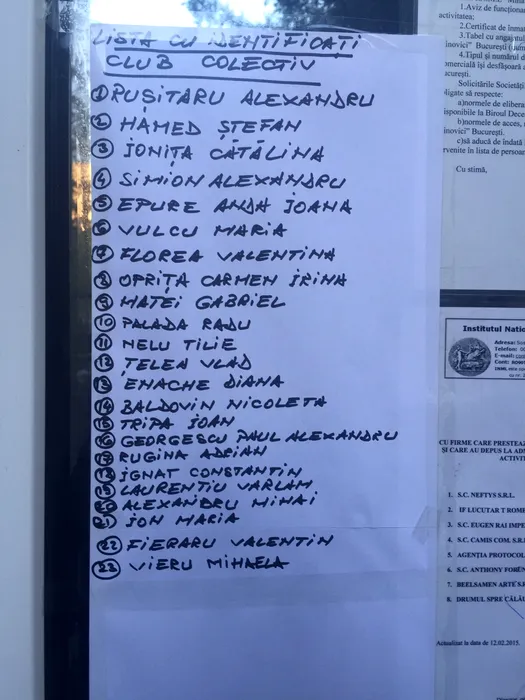 LISTA CU IDENTIFICAȚI
CLUB COLECTIV
1 PUȘITARU ALEXANDRU
2 HAMED ȘTEFAN
3 IONIȚA CĂTĂLINA
4 SIMION ALEXANDRU
5 EPURE ANDA IOANA
6 VULCU MARIA
7 FLOREA VALENTINA
8 OPRIȚA CARMEN IRINA
9 MATEI GABRIEL
10 PALADA RADU
11 NELU TILIE
12 ȚELEA VLAD
13 ENACHE DIANA
14 BALDOVIN NICOLETA
15 TRIPA IOAN
16 GEORGESCU PAUL ALEXANDRU
17 RUGINA ADRIAN
18 IGNAT CONSTANTIN
19 LAURENTIU VARLAM
20 ALEXANDRU MIHAI
21 ION MARIA
22 FIERARU VALENTIN
23 VIERU MIHAELA
1.Aviz de funcționar
activitatea;
2.Certificat de înmat
3.Tabel cu angajații
inovici" București (num
4.Tipul și numărul d
omercială își desfășoară a
ucurești.
Solicitările Societăți
ligate să respecte:
a)normele de elibera
isponibile la Biroul Dece
b)normele de acces,
inovici" București.
c)să aducă de îndată
rvenite în lista de persoane
Cu stimă,
Institutul Națio
Adresa: Sos
Telefon: 00
E-mail:
Cont:
CU FIRME CARE PRESTEA
ȘI CARE AU DEPUS LA AD
ACTIVIT
1. S.C. NEFTYS S.R.L.
2. IF LUCUTAR T ROME
3. S.C. EUGEN RAI IMPE
4. S.C. CAMIS COM. S.R.L
5. AGENȚIA PROTOCOL
6. S.C. ANTHONY FOREN
7. BEELSAMEN ARTE S.R
8. DRUMUL SPRE CĂLĂU
Actualizat la data de 12.02.2015.